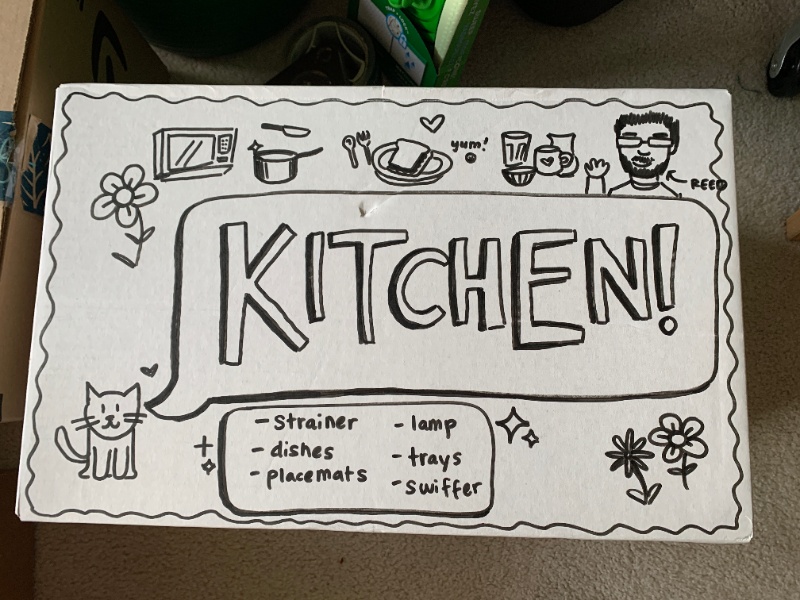 yum!
REED
KITCHEN!
- Strainer
- dishes
- placemats
- lamp
- trays
- Swiffer